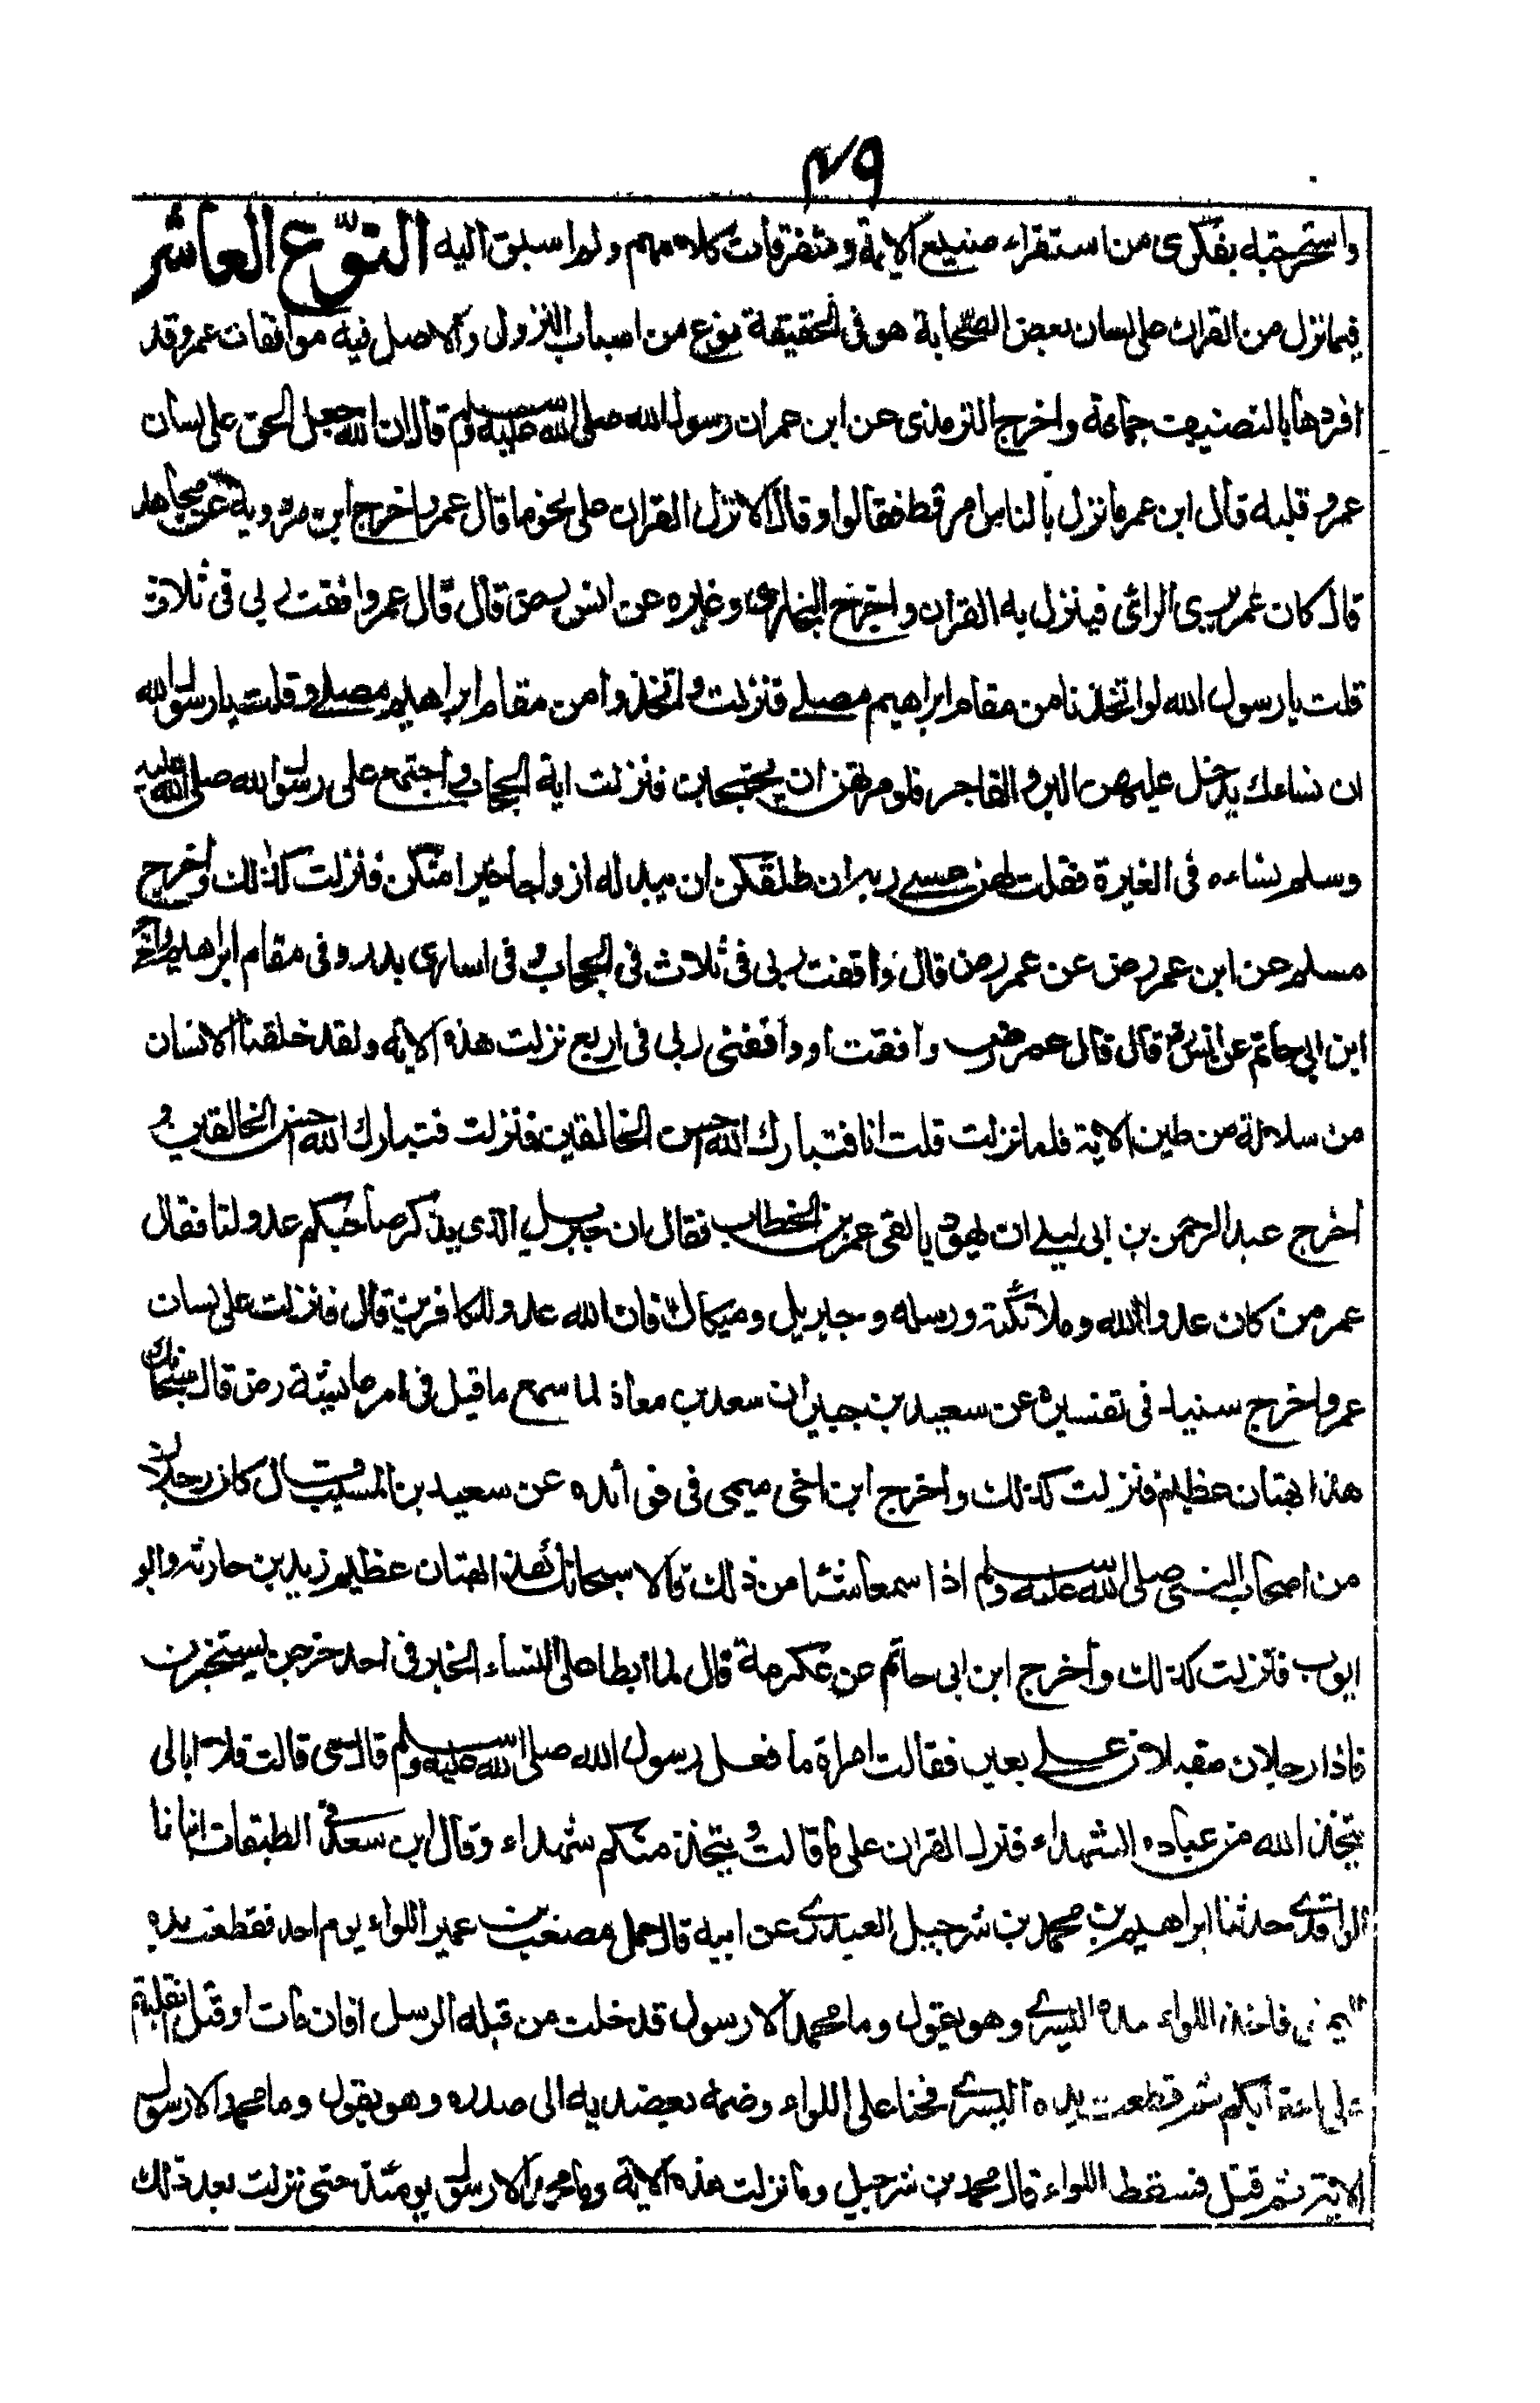 ٧٩
واستخرجته بفكرى من استقراء صنيع الايمة ومتفرقات كلامهم ولم اسبق اليه النوع العاشر
فيما نزل من القران على لسان بعض الصحابة هو فى الحقيقة نوع من اسباب النزول والاصل فيه موافقات عمر وقد
افردها بالتصنيف جماعة واخرج الترمذى عن ابن عمر ان رسول الله صلى الله عليه وسلم قال ان الله جعل الحق على لسان
عمر و قلبه قال ابن عمر ما نزل بالناس امر قط فقالوا وقال الا نزل القران على نحو ما قال عمر واخرج ابن مردويه عن مجاهد
قال كان عمر يرى الرائى فينزل به القران واخرج البخارى وغيره عن انس رض قال قال عمر وافقت ربى فى ثلاث
قلت يا رسول الله لو اتخذنا من مقام ابراهيم مصلے فنزلت واتخذوا من مقام ابراهيم مصلے وقلت يا رسول الله
ان نساءك يدخل عليهن البر والفاجر فلو امرتهن ان يحتجبن فنزلت اية الحجاب واجتمع على رسول الله صلى الله عليه
وسلم نساءه فى الغيرة فقلت لهن عسے ربه ان طلقكن ان يبدله ازواجا خيرا منكن فنزلت كذلك واخرج
مسلم عن ابن عمر رض عن عمر رض قال وافقت ربى فى ثلاث فى الحجاب و فى اسارى بدر وفى مقام ابراهيم واخرج
ابن ابى حاتم عن انس رض قال قال عمر رض وافقت او وافقنى ربى فى اربع نزلت هذه الاية ولقد خلقنا الانسان
من سلالة من طين الاية فلما نزلت قلت انا فتبارك الله احسن الخالقين فنزلت فتبارك الله احسن الخالقين و
اخرج عبد الرحمن بن ابى ليلے ان يهوديا لقى عمر بن الخطاب فقال ان جبريل الذى يذكر صاحبكم عدو لنا فقال
عمر من كان عدوا لله وملائكته ورسله و جبريل وميكال فان الله عدو للكافرين قال فنزلت على لسان
عمر واخرج سنيد فى تفسيره عن سعيد بن جبير ان سعد بن معاذ لما سمع ما قيل فى امر عايشة رض قال سبحانك
هذا بهتان عظيم فنزلت كذلك واخرج ابن اخى ميمى فى فوائده عن سعيد بن المسيب قال كان رجلان
من اصحاب النبى صلى الله عليه وسلم اذا سمعا شيئا من ذلك قالا سبحانك هذا بهتان عظيم زيد بن حارثه وابو
ايوب فنزلت كذلك واخرج ابن ابى حاتم عن عكرمة قال لما ابطا على النساء الخبر فى احد خرجن يستخبرن
فاذا رجلان مقبلان علے بعير فقالت امراة ما فعل رسول الله صلى الله عليه وسلم قال حى قالت فلا ابالى
يتخذ الله من عباده الشهداء فنزل القران على ما قالت ويتخذ منكم شهداء وقال ابن سعد فى الطبقات انبانا
الواقدے حدثنا ابراهيم بن محمد بن شرحبيل العبدرے عن ابيه قال حمل مصعب بن عمير اللواء يوم احد فقطعت يده
اليمنى فاخذ اللواء بيده اليسرے وهو يقول وما محمد الا رسول قد خلت من قبله الرسل افان مات او قتل انقلبتم
على اعقابكم ثم قطعت يده اليسرے فحنا على اللواء وضمه بعضديه الى صدره وهو يقول وما محمد الا رسول
الاية ثم قتل فسقط اللواء قال محمد بن شرحبيل وما نزلت هذه الاية وما محمد الا رسول يومئذ حتى نزلت بعد ذلك